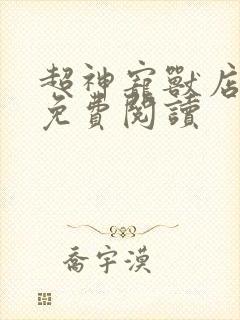 超神寵獸店
免費閱讀
喬宇漠